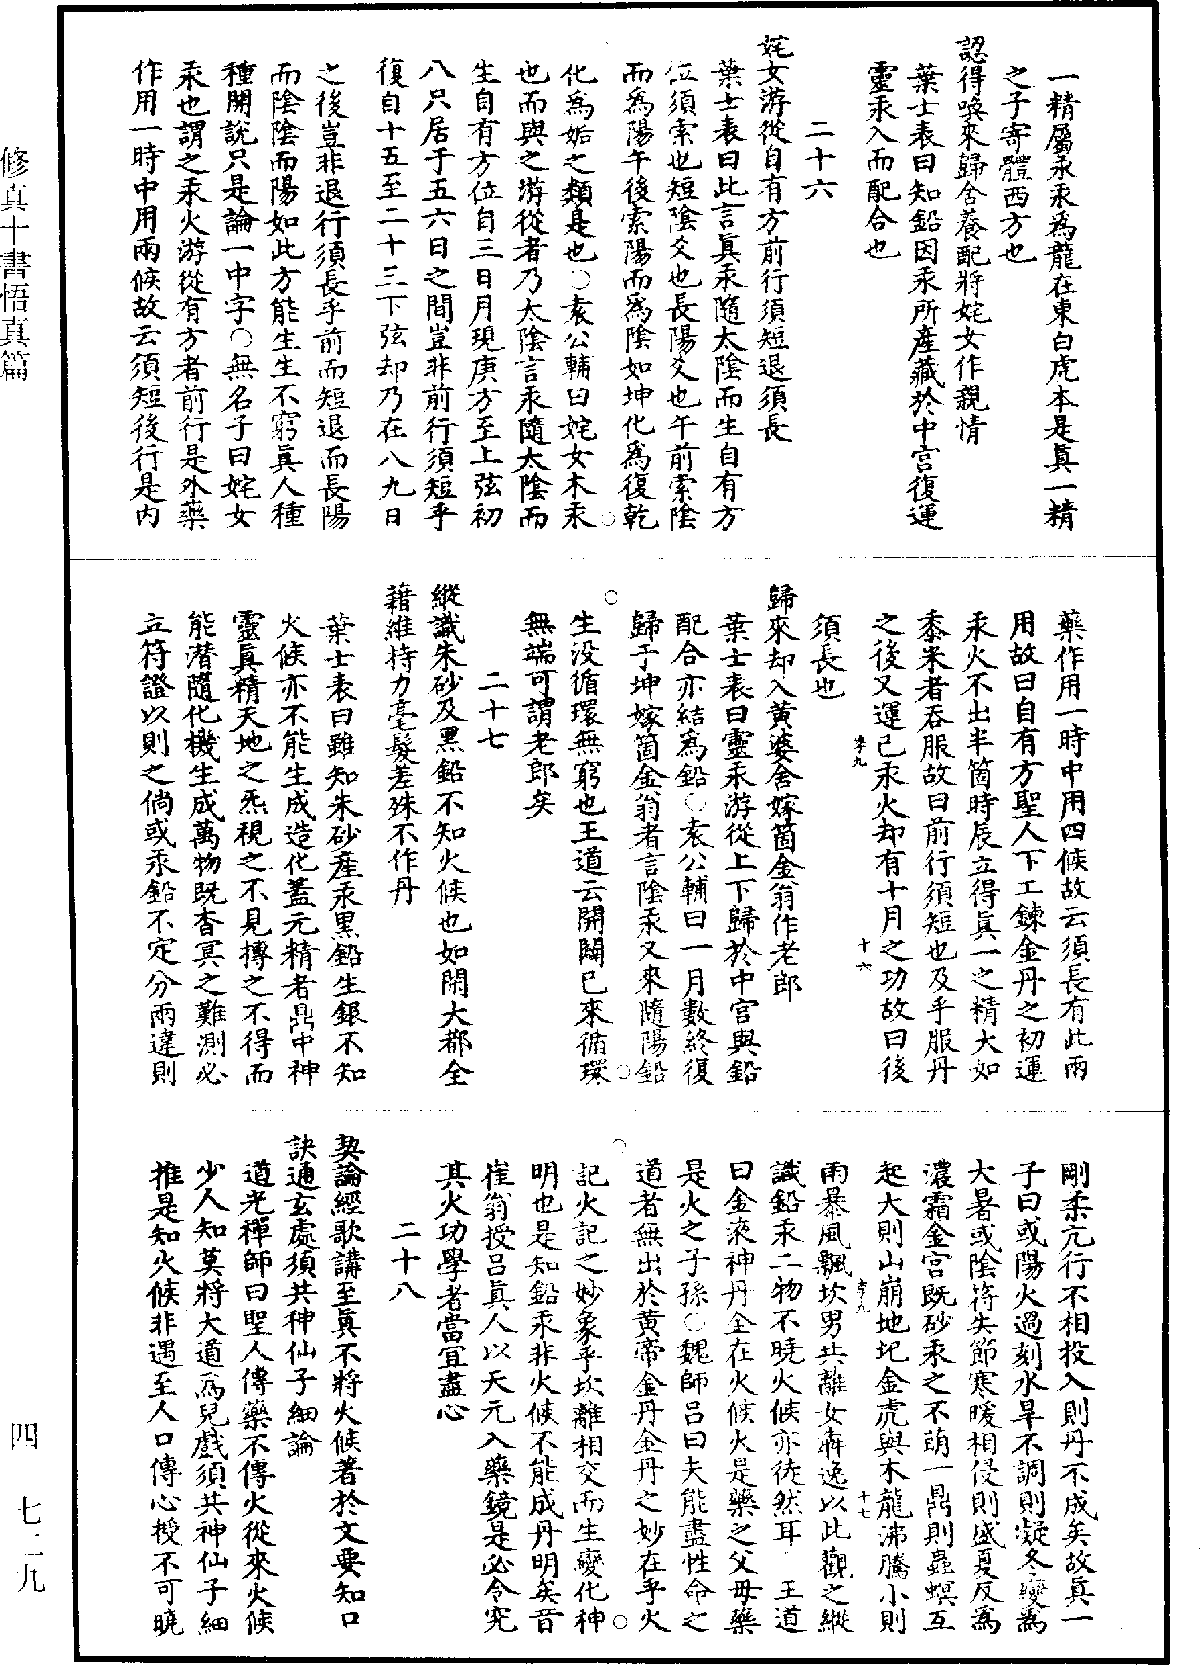 修真十書悟真篇
一精屬汞汞為龍在東白虎本是真一精
之子寄體西方也
認得喚來歸舍養配將姹女作親情
葉士表曰知鉛因汞所產藏於中宮復運
靈汞入而配合也
二十六
姹女游從自有方前行須短退須長
葉士表曰此言真汞隨太陰而生自有方
位須索也短陰爻也長陽爻也午前索陰
而為陽午後索陽而為陰如坤化為復乾
化為姤之類是也○袁公輔曰姹女木汞
也而與之游從者乃太陰言汞隨太陰而
生自有方位自三日月現庚方至上弦初
八只居于五六日之間豈非前行須短乎
復自十五至二十三下弦却乃在八九日
之後豈非退行須長乎前而短退而長陽
而陰陰而陽如此方能生生不窮真人種
種開說只是論一中字○無名子曰姹女
汞也謂之汞火游從有方者前行是外藥
作用一時中用兩候故云須短後行是內
藥作用一時中用四候故云須長有此兩
用故曰自有方聖人下工鍊金丹之初運
汞火不出半箇時辰立得真一之精大如
黍米者吞服故曰前行須短也及乎服丹
之後又運己汞火却有十月之功故曰後
須長也
歸來却入黃婆舍嫁箇金翁作老郎
葉士表曰靈汞游從上下歸於中宮與鉛
配合亦結為鉛○袁公輔曰一月數終復
歸于坤嫁箇金翁者言陰汞又來隨陽鉛
生没循環無窮也王道云開闢已來循環
無端可謂老郎矣
二十七
縱識朱砂及黑鉛不知火候也如閑大都全
藉維持力毫髮差殊不作丹
葉士表曰雖知朱砂產汞黑鉛生銀不知
火候亦不能生成造化蓋元精者鼎中神
靈真精天地之炁視之不見搏之不得而
能潛隨化機生成萬物既杳冥之難測必
立符證以則之倘或汞鉛不定分兩違則
剛柔亢行不相投入則丹不成矣故真一
子曰或陽火過刻水旱不調則凝冬變為
大暑或陰符失節寒暖相侵則盛夏反為
濃霜金宮既砂汞之不萌一鼎則蟲螟互
起大則山崩地圮金虎與木龍沸騰小則
雨暴風飄坎男共離女奔逸以此觀之縱
識鉛汞二物不曉火候亦徒然耳 王道
曰金液神丹全在火候火是藥之父母藥
是火之子孫○魏師呂曰夫能盡性命之
道者無出於黃帝金丹金丹之妙在乎火
記火記之妙象乎坎離相交而生變化神
明也是知鉛汞非火候不能成丹明矣昔
崔翁授呂真人以天元入藥鏡是必令究
其火功學者當冝盡心
二十八
契論經歌講至真不將火候著於文要知口
訣通玄處須共神仙子細論
道光禪師曰聖人傳藥不傳火從來火候
少人知莫將大道為兒戲須共神仙子細
推是知火候非遇至人口傳心授不可曉
四 七二九